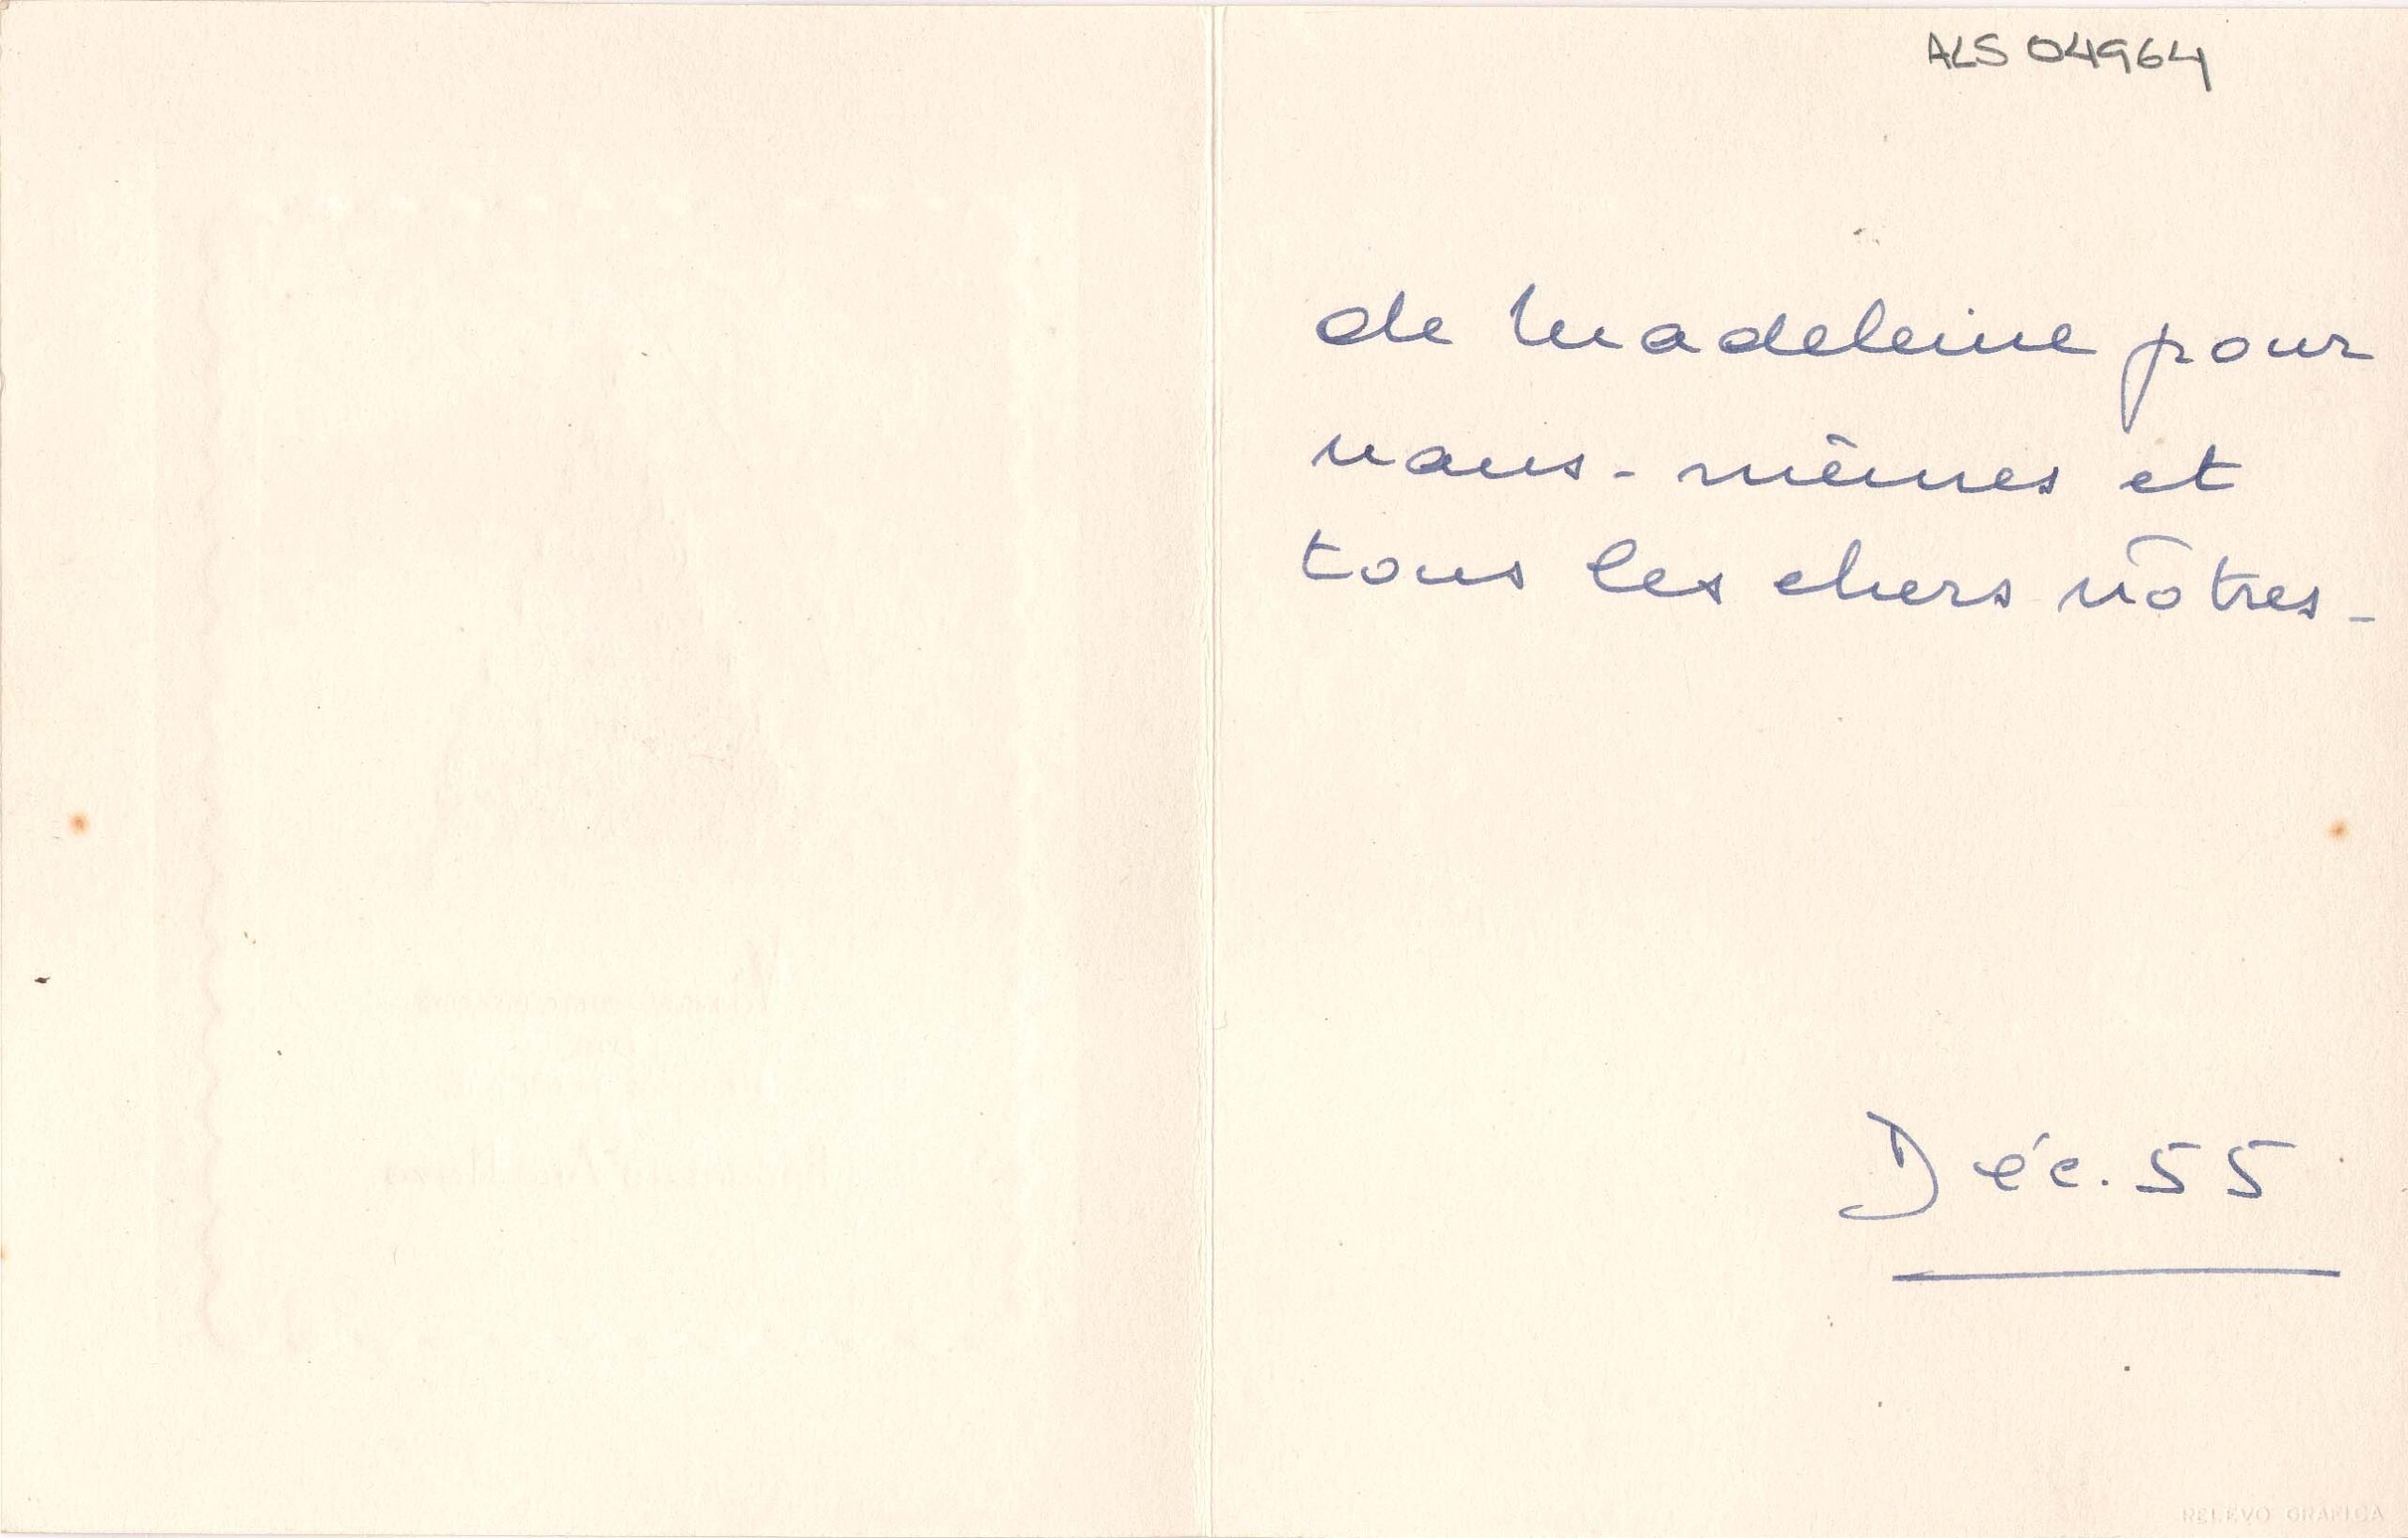 ALS 04964
de Madeleine pour
nous-mêmes et
tous les chers nôtres-
Déc. 55
RELEVO GRAFICA